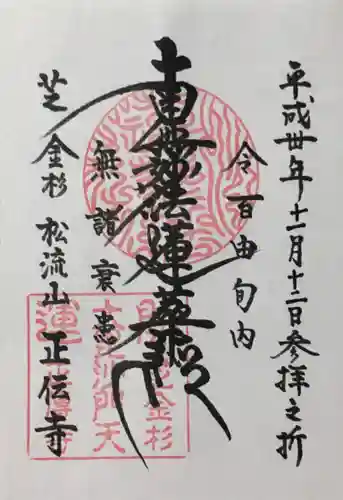 平成卅年十一月十二日参拝之折
令百由旬内
南無妙法蓮華経
無諸衰患
芝金杉 松流山 正伝寺